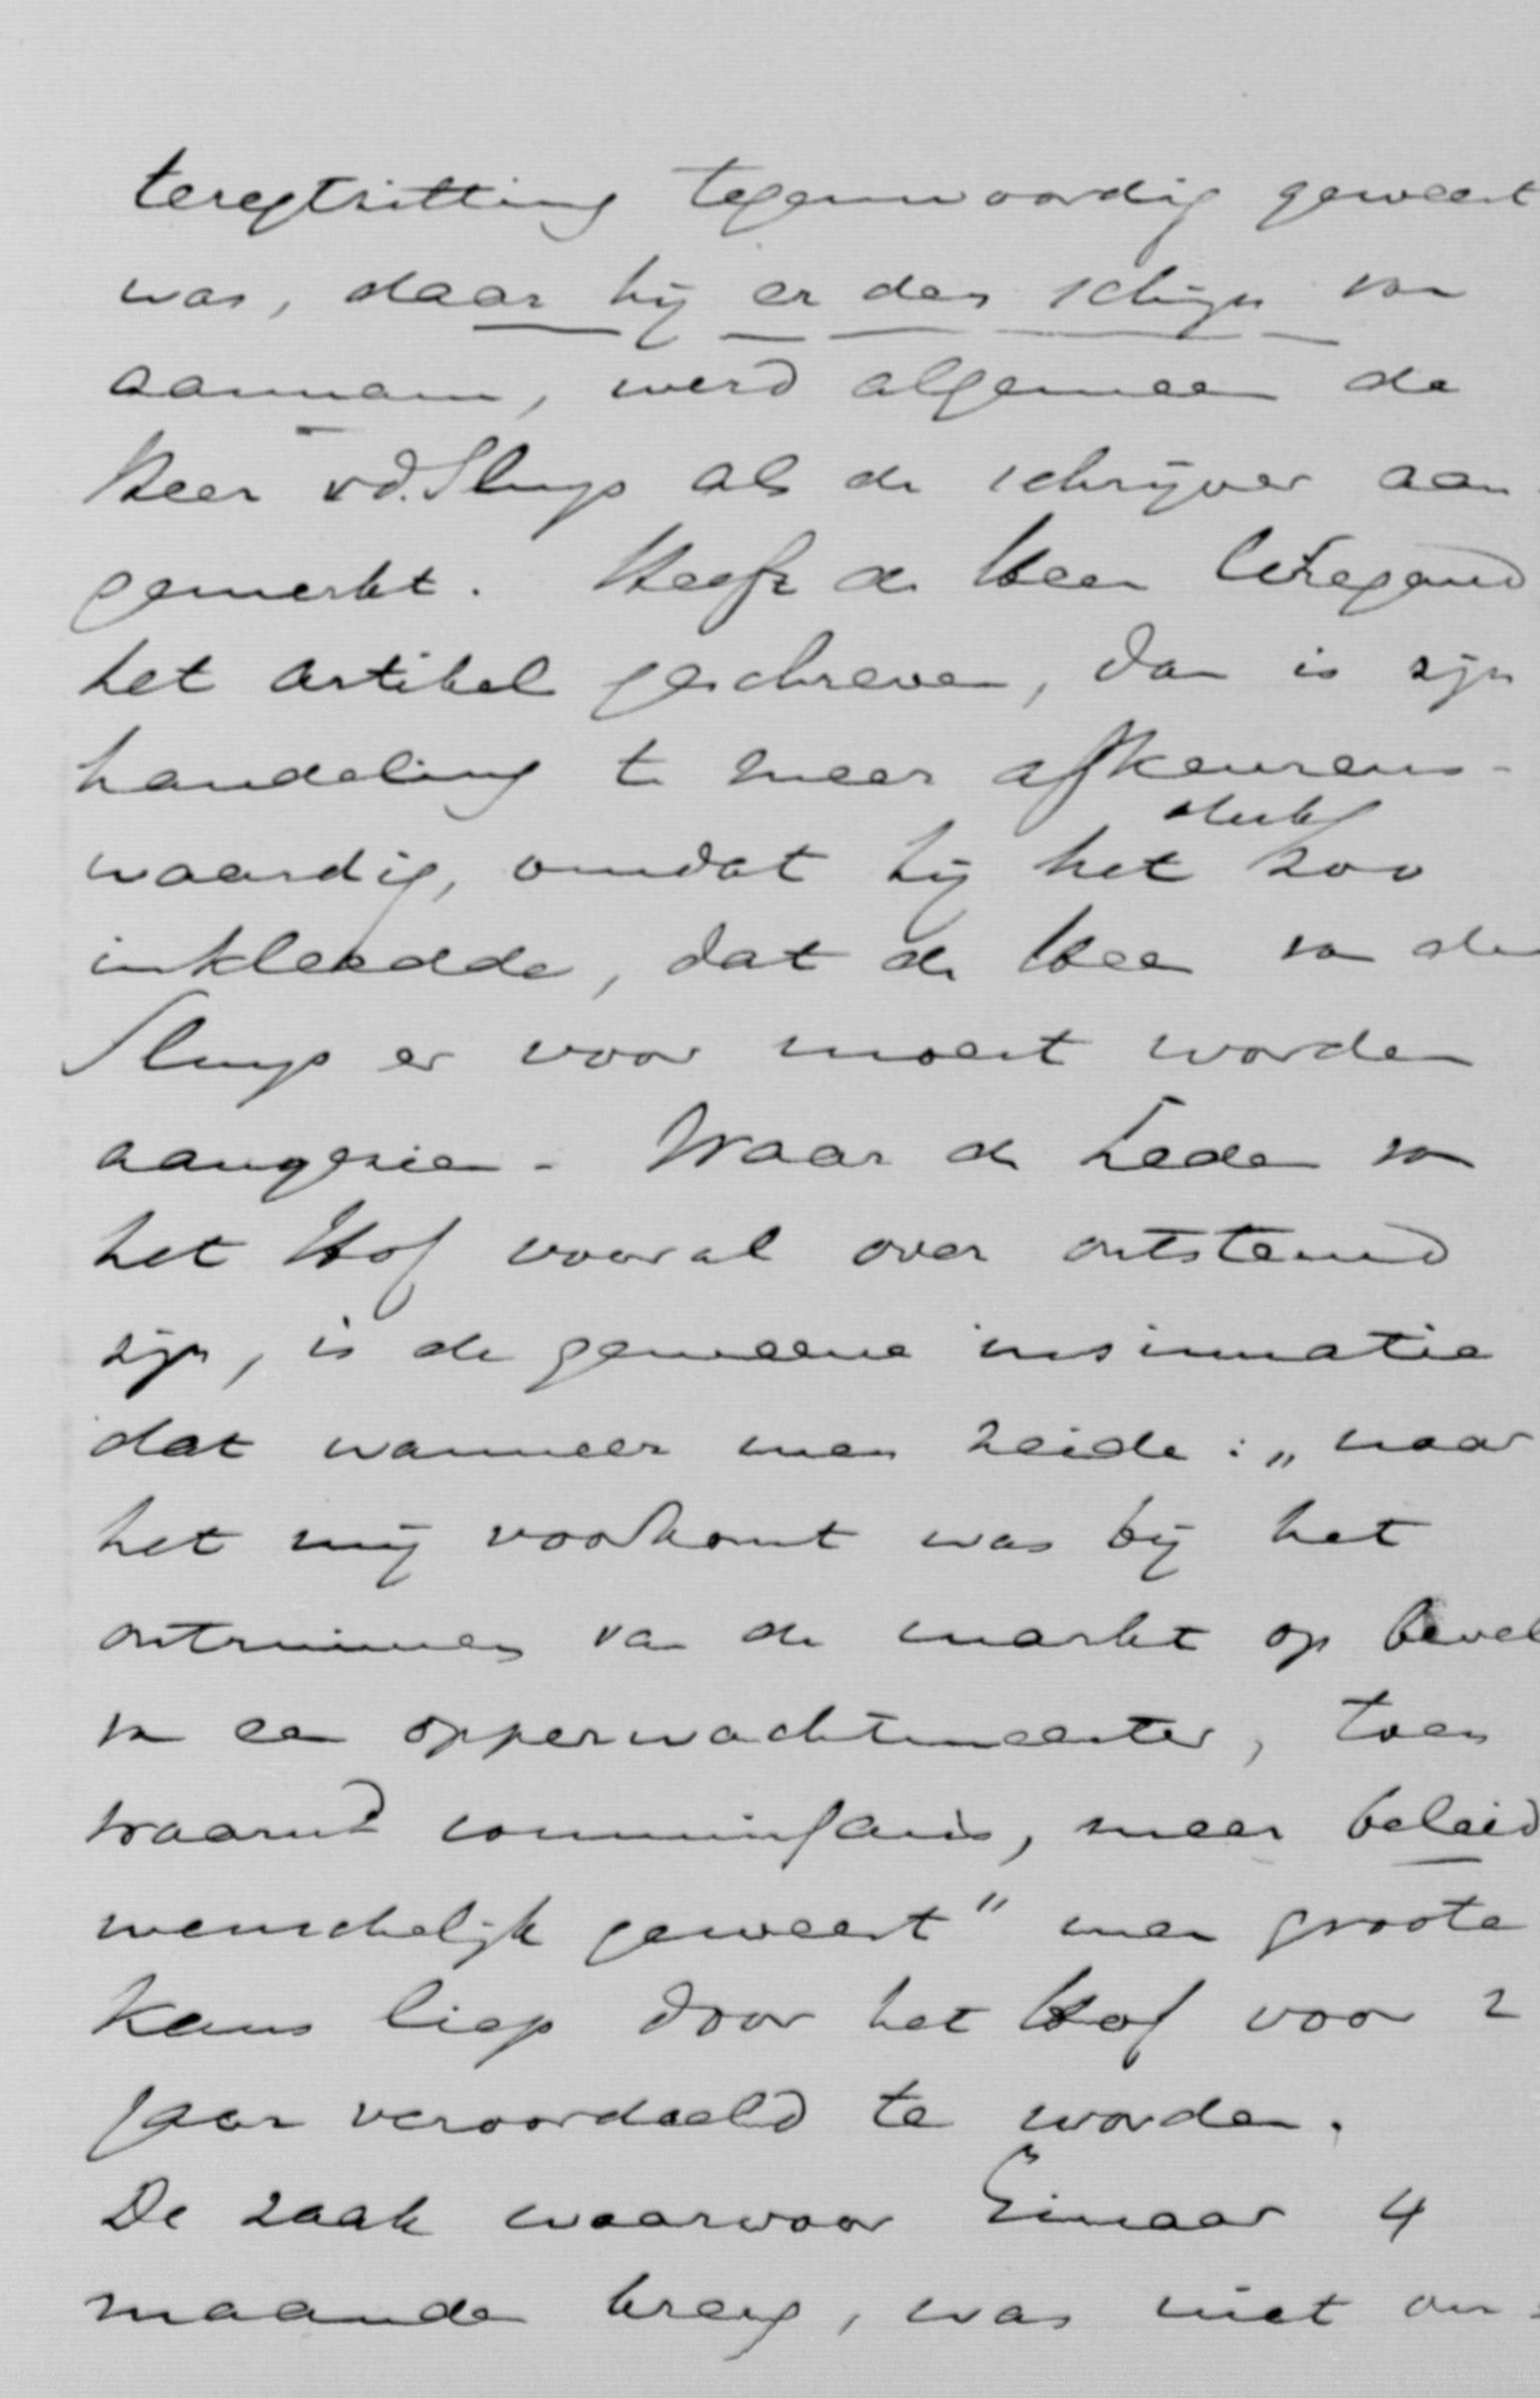 teregtzitting tegenwoordig geweest
was, daar hij er den schijn van
aannam, werd algemeen de
Heer vd. Sluys als de schrijver aan-
gemerkt. Heeft de Heer
het artikel geschreven, dan is zijn
handeling te meer afkeurens-
waardig, omdat hij het stuk zoo
inkleedde, dat de Heer van der
Sluys er voor moest worden
aangezien. Waar de Leden van
het Hof vooral over ontstemd
zijn, is de gemeene insinuatie
dat wanneer men zeide: „naar
het mij voorkomt was bij het
ontruimen van de markt op bevel
van een opperwachtmeester, toen
waarnd commissaris, meer beleid
wenschelijk geweest" men groote
kans liep door het Hof voor 2
jaar veroordeeld te worden.
De zaak waarvoor Eimaar 4
maanden kreeg, was niet on-